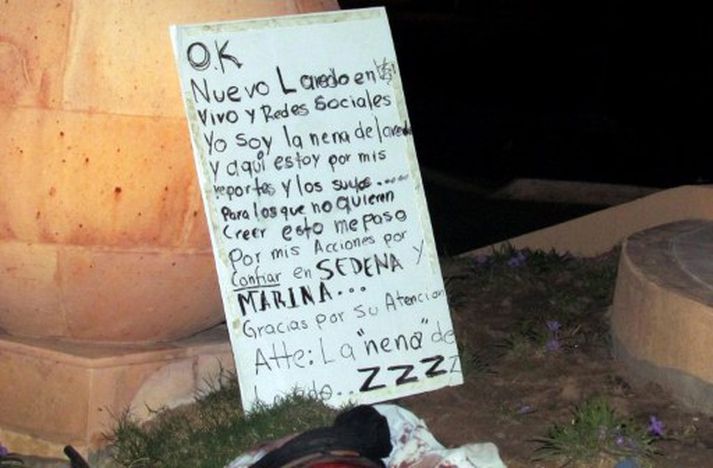 O.K
Nuevo Laredo en
Vivo y Redes Sociales
Yo soy la nena de Laredo
y aquí estoy por mis
reportes y los suyos.....
Para los que no quieren
Creer esto me paso
por mis Acciones por
Confiar en SEDENA y
MARINA...
Gracias por su Atencion
Atte: La "nena" de
Laredo... ZZZZ